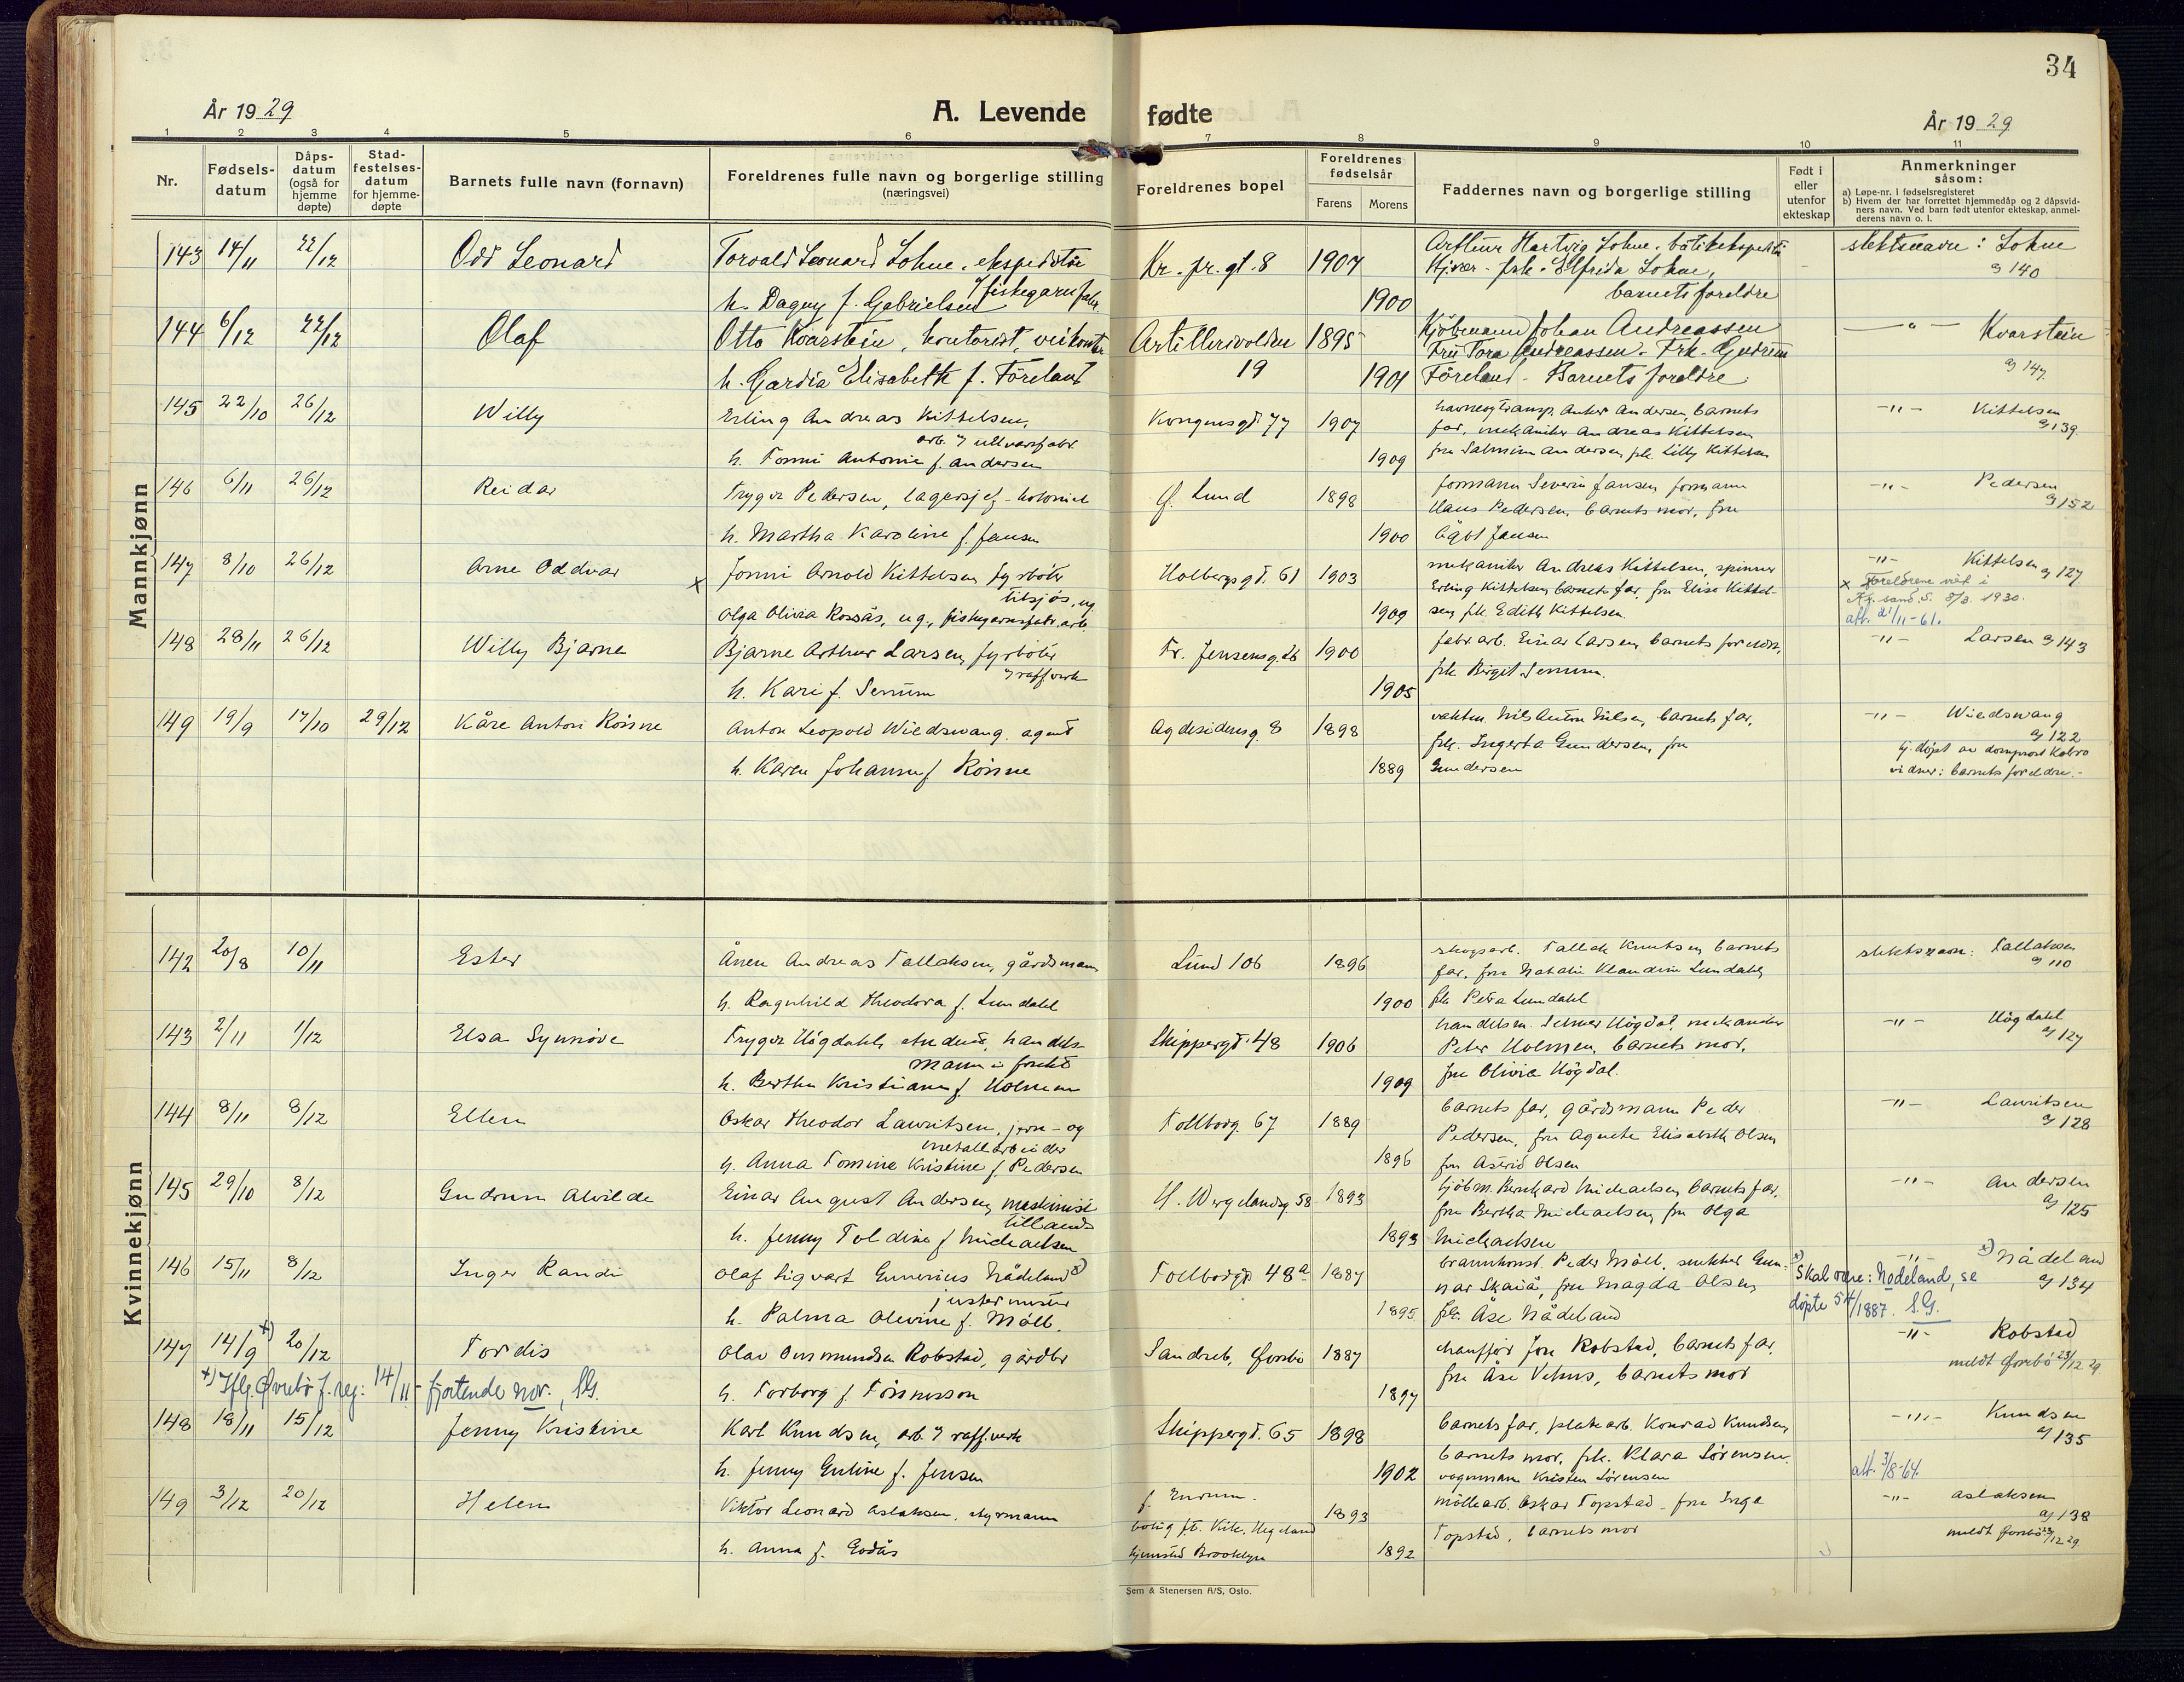 34
År 19 29
A. Levende fødte
År 19 29
1 2 3 4 5 6 7 8 9 10 11
Nr.
Fødsels-
datum
Dåps-
datum
(også for
hjemme
døpte)
Stad-
festelses-
datum
for hjemme-
døpte
Barnets fulle navn (fornavn)
Foreldrenes fulle navn og borgerlige stilling
(næringsvei)
Foreldrenes bopel
Foreldrenes
fødselsår
Farens Morens
Faddernes navn og borgerlige stilling
Født i
eller
utenfor
ekteskap
Anmerkninger
såsom:
a) Løpe-nr. i fødselsregisteret
b) Hvem der har forrettet hjemmedåp og 2 dåpsvid-
ners navn. Ved barn født utenfor ekteskap, anmel-
derens navn o. l.
Mannkjønn
143 14/11 22/12 Odd Leonard Torvald Leonard Lohne, ekspeditør Kr. pr. gt. 8 1907 Arthur Hartvig Lohne, slektsnavn: Lohne
fiskegarnfabr. frk. Elfrida Lohne, a) 140
h. Dagny f. Gabrielsen 1900 barnets foreldre
144 6/12 22/12 Olaf Otto Kvarstein, kontorist, Artillerivollen 1895 Kjöbmann Johan Andreassen —"— Kvarstein
19 Fru Tora Andreassen. Frk. Gudrun a) 147
h. Gardia Elisabeth f. Föreland 1901 Föreland. Barnets foreldre
145 22/10 26/12 Willy Erling Andreas Kittelsen, Kongensgt 77 1907 Anker Andersen, barnets —"— Kittelsen
arb. ullvarefabr. far, mekaniker Andreas Kittelsen a) 139
h. Tonni Antonie f. Andersen 1909 fru Salmine Andersen, frk. Lilly Kittelsen
146 6/11 26/12 Reidar Trygve Pedersen, lagersjef - kolonial Lund 1898 formann Severin Jansen, formann —"— Pedersen
Hans Pedersen, barnets mor, fru a) 152
h. Martha Karoline f. Jansen 1900 Ågot Jansen
147 8/10 26/12 Arne Oddvar x Jonni Arnold Kittelsen fyrböter Holbergsgt. 61 1903 mekaniker Andreas Kittelsen, spinner —"— Kittelsen a) 127
tilsjös, ug. Erling Kittelsen, barnets far, fru Elise Kittel- x Foreldrene viet i
Olga Olivia Rossås, ug., fiskegarnsfabr.arb. 1909 sen, frk. Edith Kittelsen. Kr.sand S. 8/3. 1930.
att. 21/11-61.
148 28/11 26/12 Willy Bjarne Bjarne Arthur Larsen, fyrböter Fr. Jensensg. 26 1900 fabr.arb. Einar Larsen, barnets foreldre, —"— Larsen a) 143
raff.verk frk. Birgit Serrum.
h. Kari f. Serrum 1905
149 19/9 17/10 29/12 Kåre Anton Roinne Anton Leopold Wiedswang, agent Agdesidensg. 8 1898 Nils Anton Nilsen, barnets far, —"— Wiedswang
frk. Ingerta Gundersen, fru a) 122
h. Karen Johanne f. Roinne 1889 Gundersen hj. döpt av domprost Kobro
vidner: barnets foreldre.-
Kvinnekjønn
142 20/8 10/11 Ester Ånen Andreas Tallaksen, gårdsmann Lund 106 1896 skogsarb. Tallak Knutsen, barnets slektsnavn: Tallaksen
far, fru Natalie Klaudine Lundahl, a) 110
h. Ragnhild Theodora f. Lundahl 1900 frk Petra Lundahl
143 2/11 1/12 Elsa Synnöve Trygve Högdahl, student, handels- Skippergt. 48 1906 handelsm. Selmer Högdal, mekaniker —"— Högdahl
mann i frukt Peter Holmen, barnets mor, a) 127
h. Bertha Kristiane f. Holmen 1909 fru Olivia Högdal.
144 8/11 8/12 Ellen Oskar Theodor Lauritsen, jern- og Tollbodg. 67 1889 barnets far, gårdsmann Peder —"— Lauritsen
metallarbeider Pedersen, fru Agnete Elisabeth Olsen a) 128
h. Anna Tomine Kristine f. Pedersen 1896 fru Astrid Olsen
145 29/10 8/12 Gudrun Alvilde Einar August Andersen, maskinist H. Wergelandsg 58 1893 kjöbm. Bernhard Michaelsen, barnets far, —"— Andersen
tillands fru Bertha Michaelsen, fru Olga a) 125
h. Jenny Toldine f. Michaelsen 1893 Michaelsen
146 15/11 8/12 Inger Randi Olaf Sigvart Gunerius Nådeland x) Tollbodgt 48a 1887 brannkonst. Peder Möll, snekker Gun- x) —"— x) Nådeland
nar Skaiå, fru Magda Olsen, Skal være: Nodeland, se a) 134
justermester frk. Åse Nådeland døpte 5 4/1887. S.G.
h. Palma Olevine f. Möll. 1895
147 14/9 +) 20/12 Tordis Olav Onsmundsen Robstad, gårdbr Sandreb, Øvrebø 1887 chaufför Jon Robstad, barnets far, —"— Robstad
+) Iflg. Øvrebø f. reg: 14/11 - fjortende nov., S.G. fru Åse Vehus, barnets mor meldt Øvrebö 23/12 29.
h. Torborg f. Tönnesson 1897
148 18/11 15/12 Jenny Kristine Karl Knudsen, arb. raff.verk Skippergt. 65 1898 barnets far, platearb. Konrad Knudsen, —"— Knudsen
barnets mor, frk. Klara Sörensen. a) 135
h. Jenny Guline f. Jensen 1902 vognmann Kristen Sörensen att. 3/8-64.
149 3/12 20/12 Helen Viktor Leonard Aslaksen, styrmann 1893 möllearb. Oskar Topstad - fru Inga —"— Aslaksen
Topstad, barnets mor a) 138
h. Anna f. hjemsted Brooklyn 1892 meldt
Sem & Stenersen A/S, Oslo.